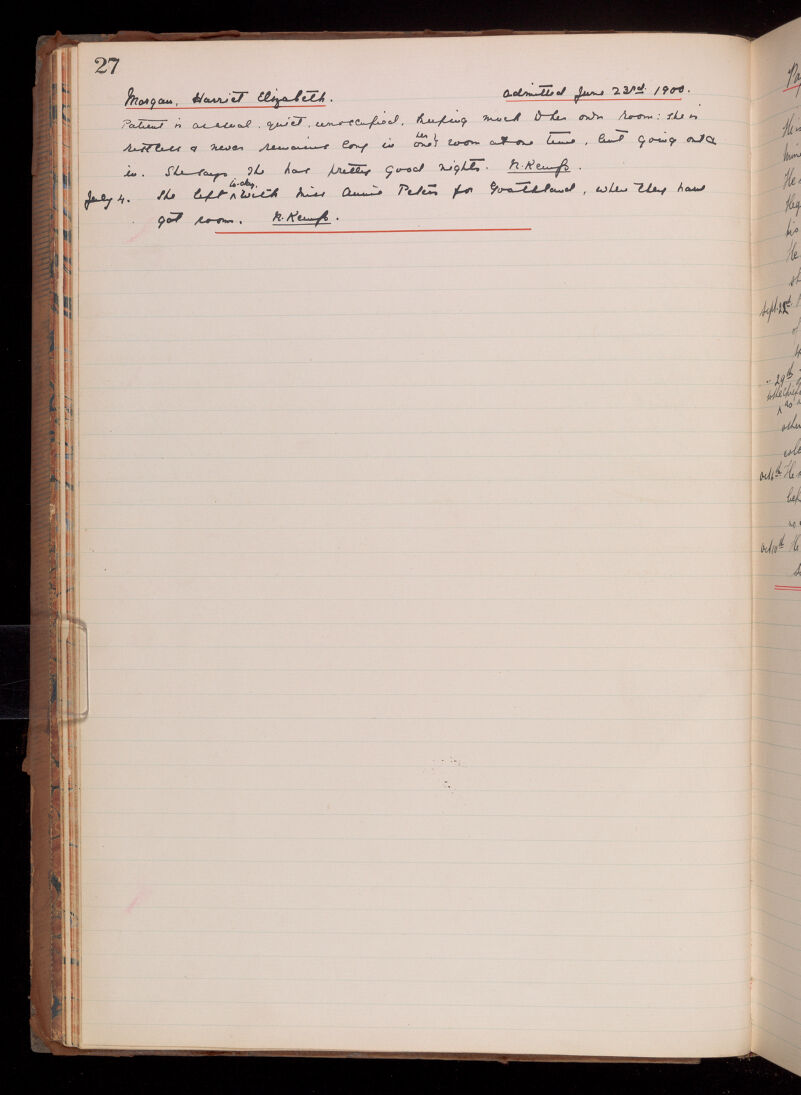 27
Morgan, Harriet Elizabeth. admitted June 23rd 1900.
Patient is as usual, quiet, unoccupied, keeping much to her own room: she is
restless & never remains long in her room at one time, but going out &
in. She says she has pretty good nights. N. Kemp.
July 4. She left to-day with Miss Annie Peters for Goathland, where they have
got rooms. N. Kemp.
Sept. 22nd
" 29th
no
Oct 6th He
Oct 10th He